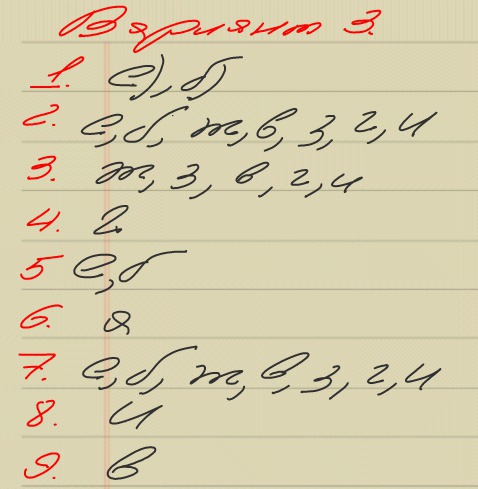 Вариант 3.
1. е), б)
2. е, б, ж, в, з, г, и
3. ж, з, в, г, и
4. г.
5 е, б
6. а
7. е, б, ж, в, з, г, и
8. и
9. в